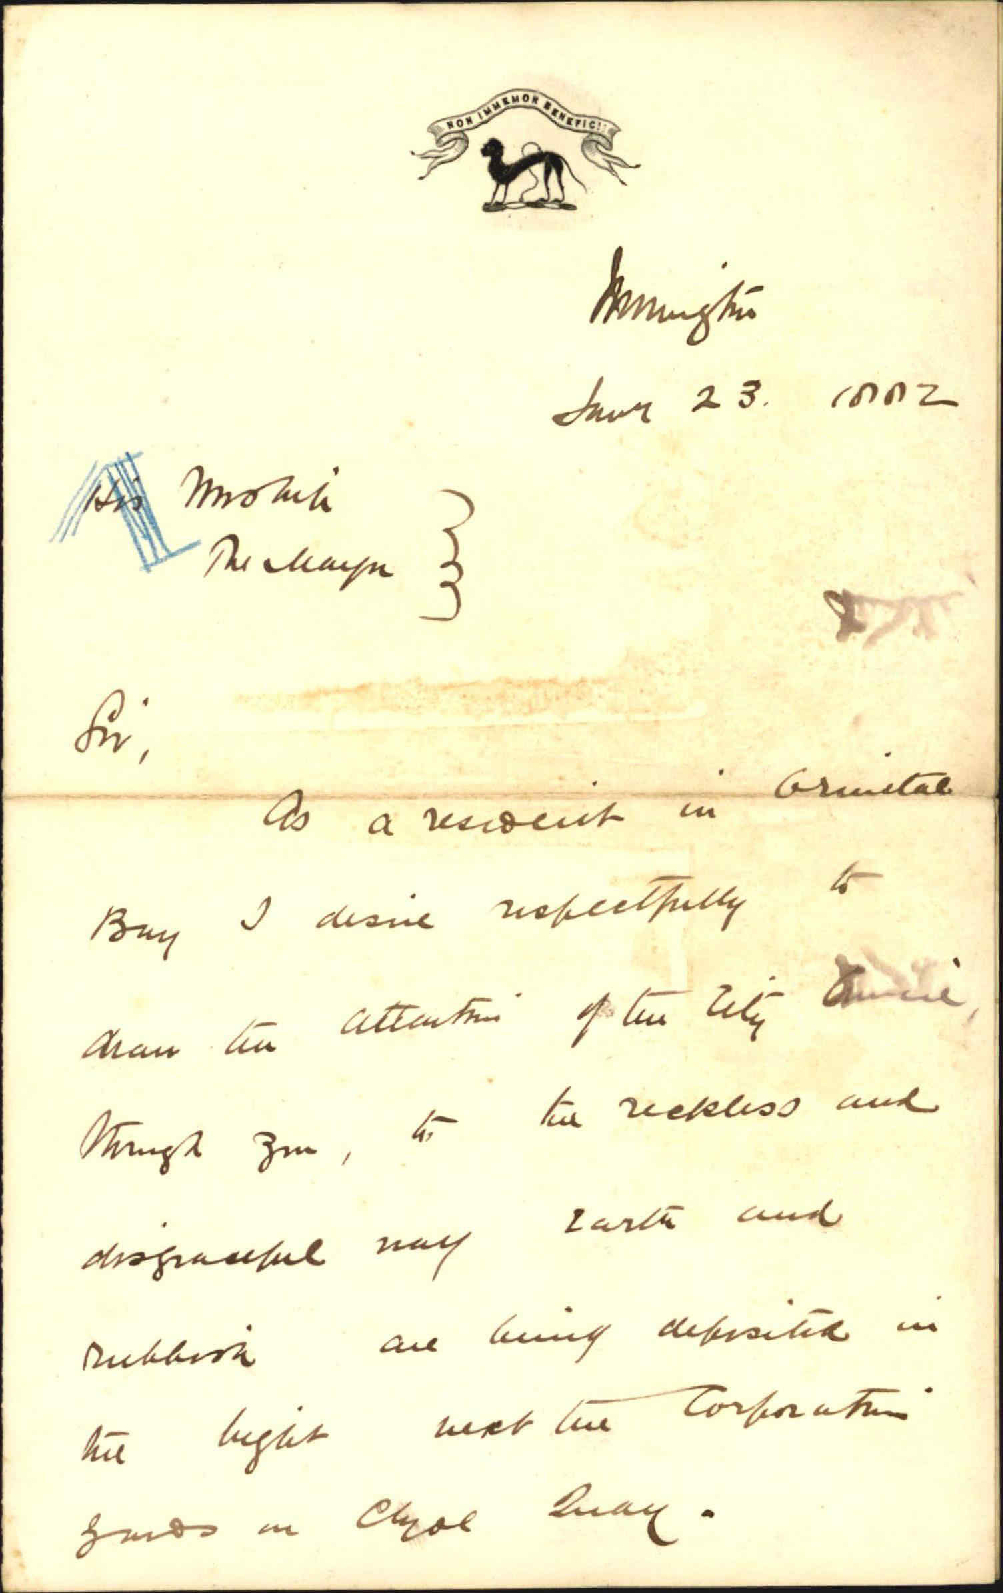 NON IMMEMOR BENEFICII
Wellington
Jany 23. 1882
His Worship
The Mayor
Sir,
As a resident in Oriental
Bay I desire respectfully to
draw the attention of the City Council,
through you, to the reckless and
disgraceful way earth and
rubbish are being deposited in
the bight next the Corporation
yards on Clyde Quay.